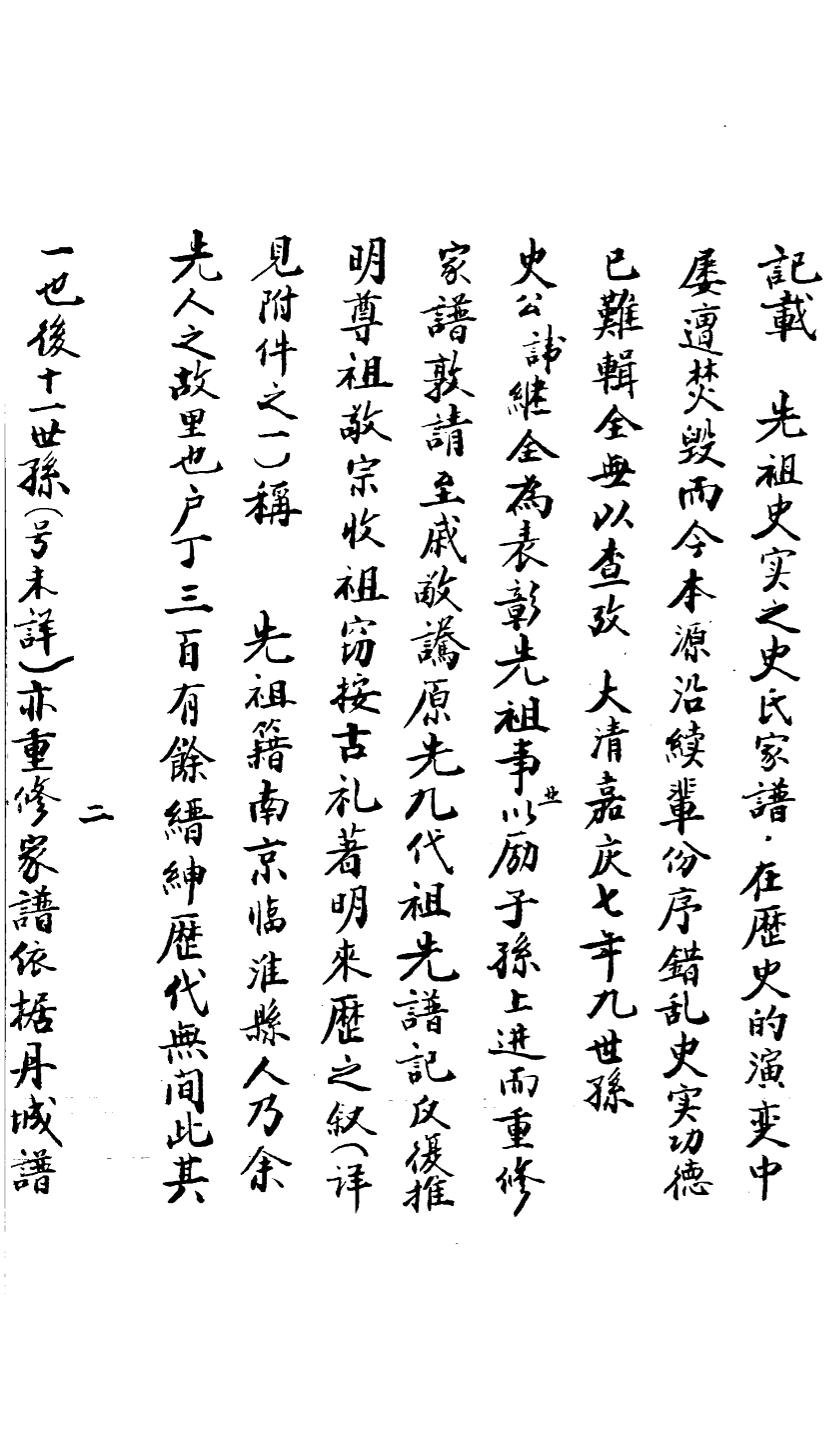 記載　先祖史实之史氏家譜．在歷史的演变中
屡遭焚毁而今本源沿續輩份序錯乱史实功德
已難輯全無以查攷　大清嘉庆七年九世孫
史公諱継全為表彰先祖事业以励子孫上进而重修
家譜敦請至戚敵譑原先九代祖先譜記反復推
明尊祖敬宗收祖窃按古礼著明來歷之叙（详
見附件之一）稱　先祖籍南京临淮縣人乃余
先人之故里也户丁三百有餘縉紳歷代無间此其
二
一也後十一世孫（号未詳）亦重修家譜依椐丹城譜